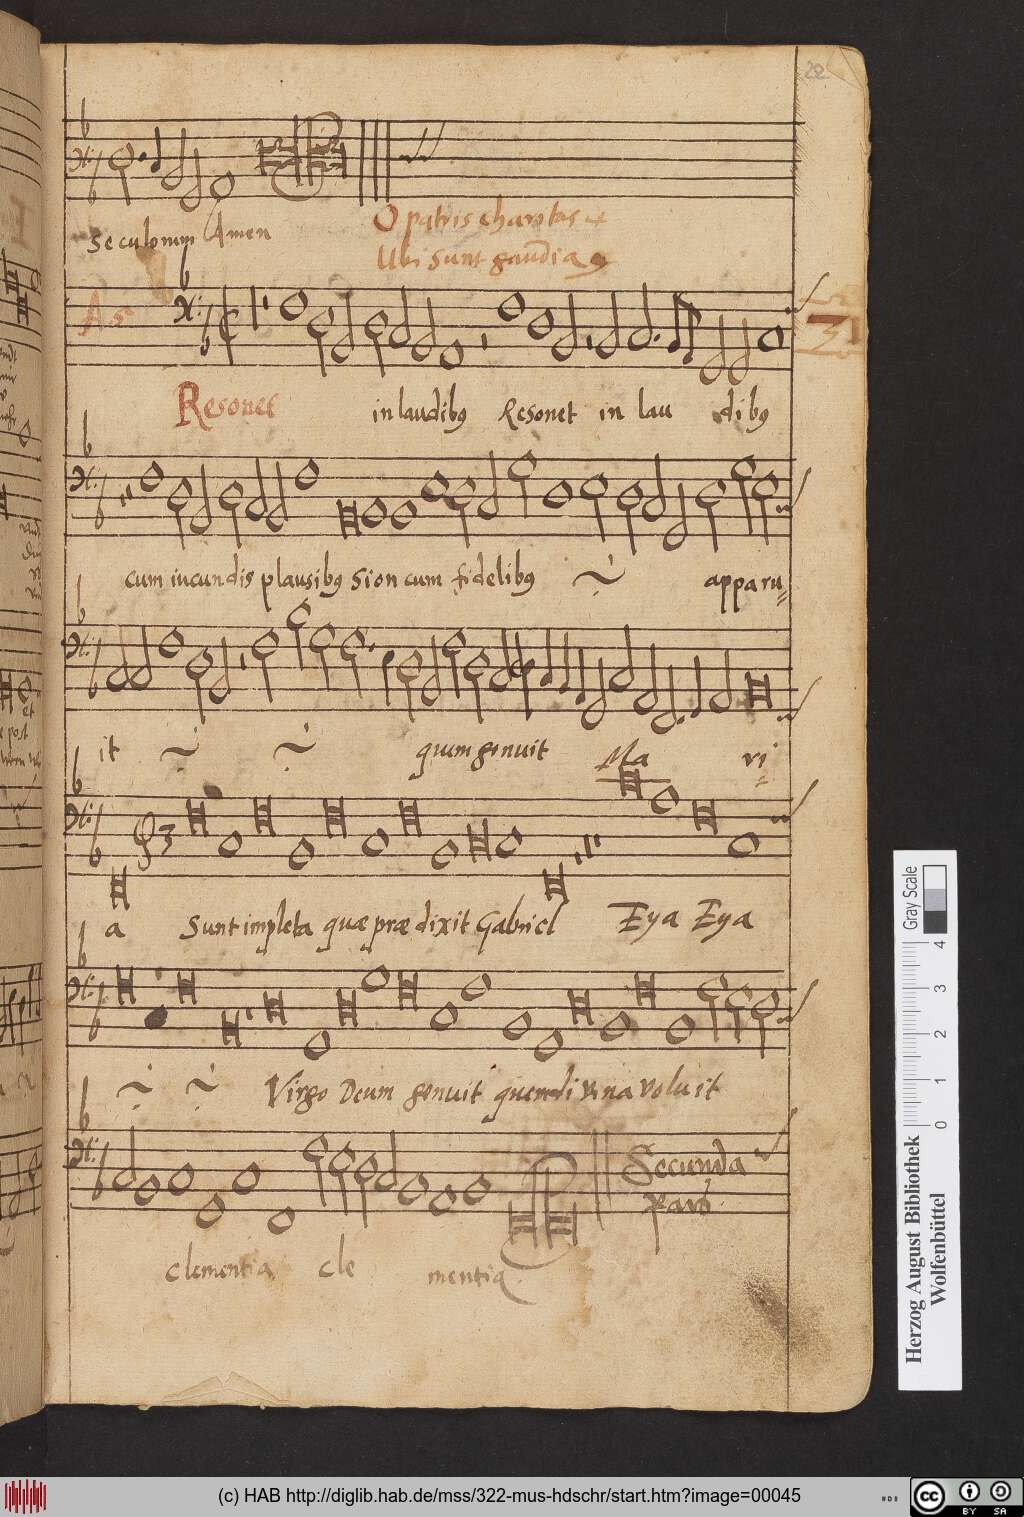 22
Seculorum Amen
O patris charitas
Ubi sunt gaudia
A 5
Resonet in laudibg Resonet in lau dibg
cum iucundis plausibg Sion cum fidelibg apparu
it quem genuit Ma ri
3
a Sunt impleta quæ prædixit Gabriel Eya Eya
Virgo Deum genuit quem divina voluit
Secunda
Pars
clementia cle mentia
Herzog August Bibliothek
Wolfenbüttel
0 1 2 3 4
Gray Scale
(c) HAB http://diglib.hab.de/mss/322-mus-hdschr/start.htm?image=00045
cc BY SA